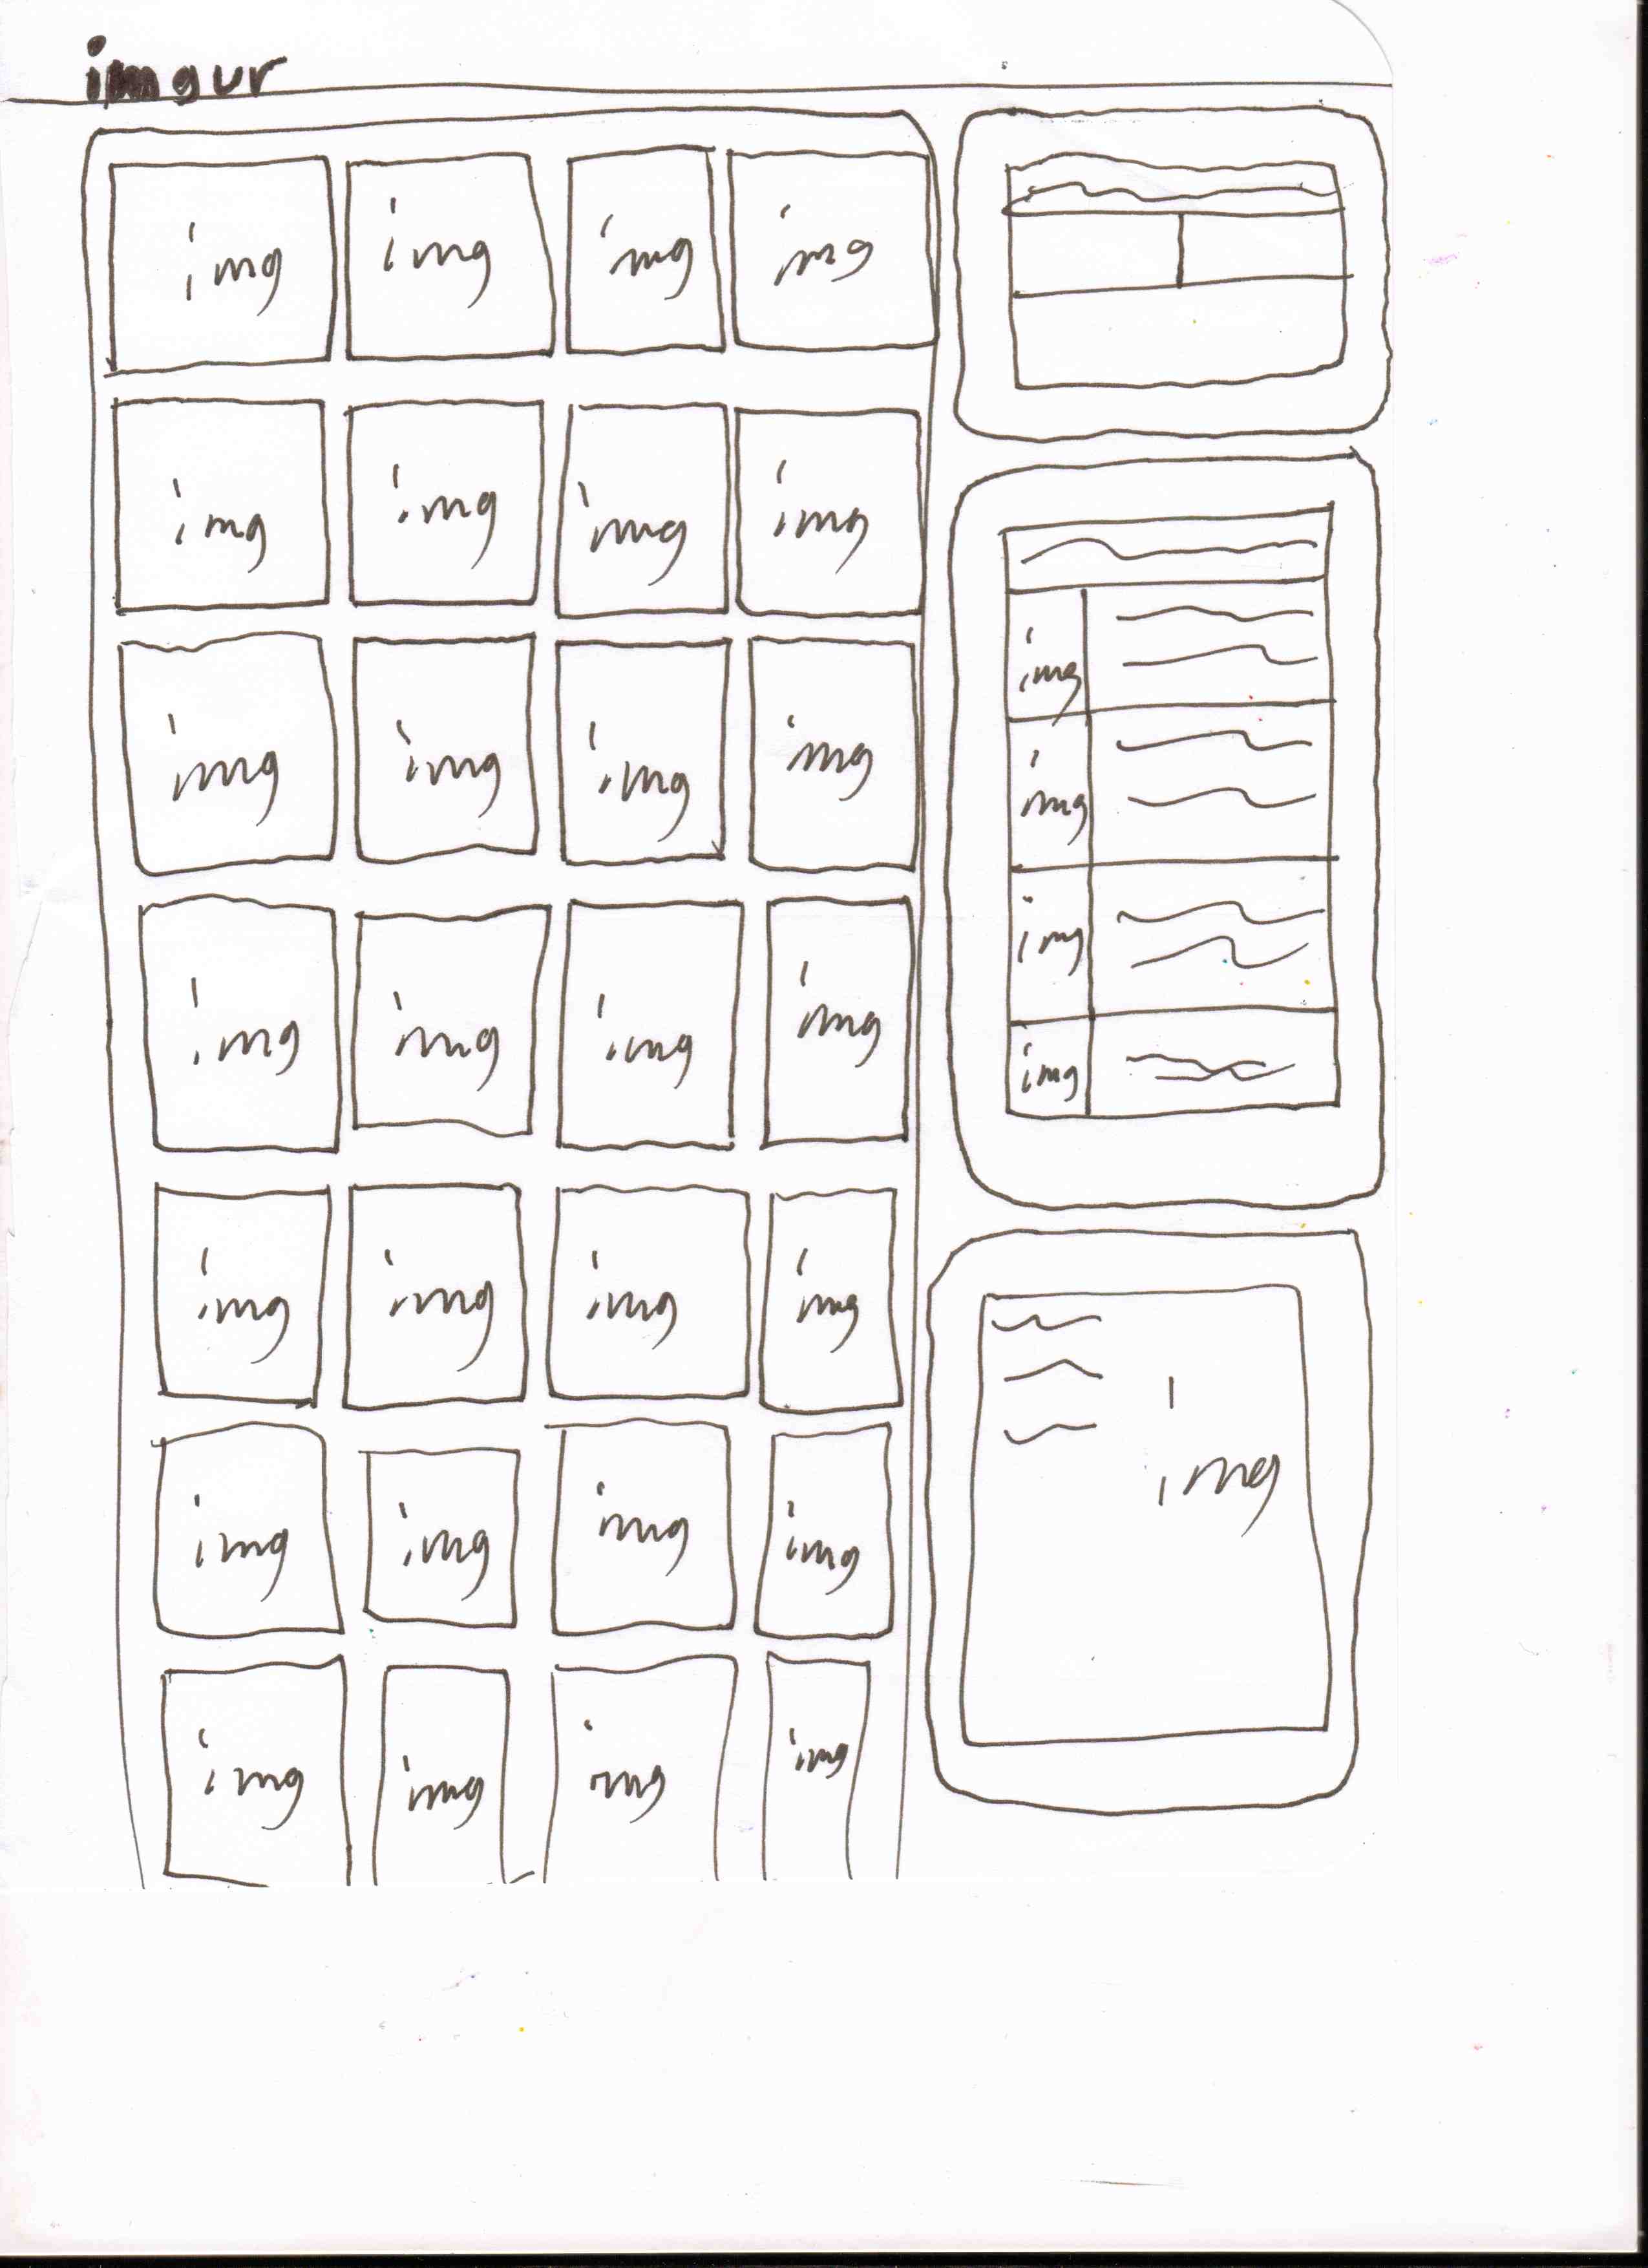 imgur
img img img img
img img img img
img img img img
img img img img
img img img img
img img img img
img img img img
img
img
img
img
img